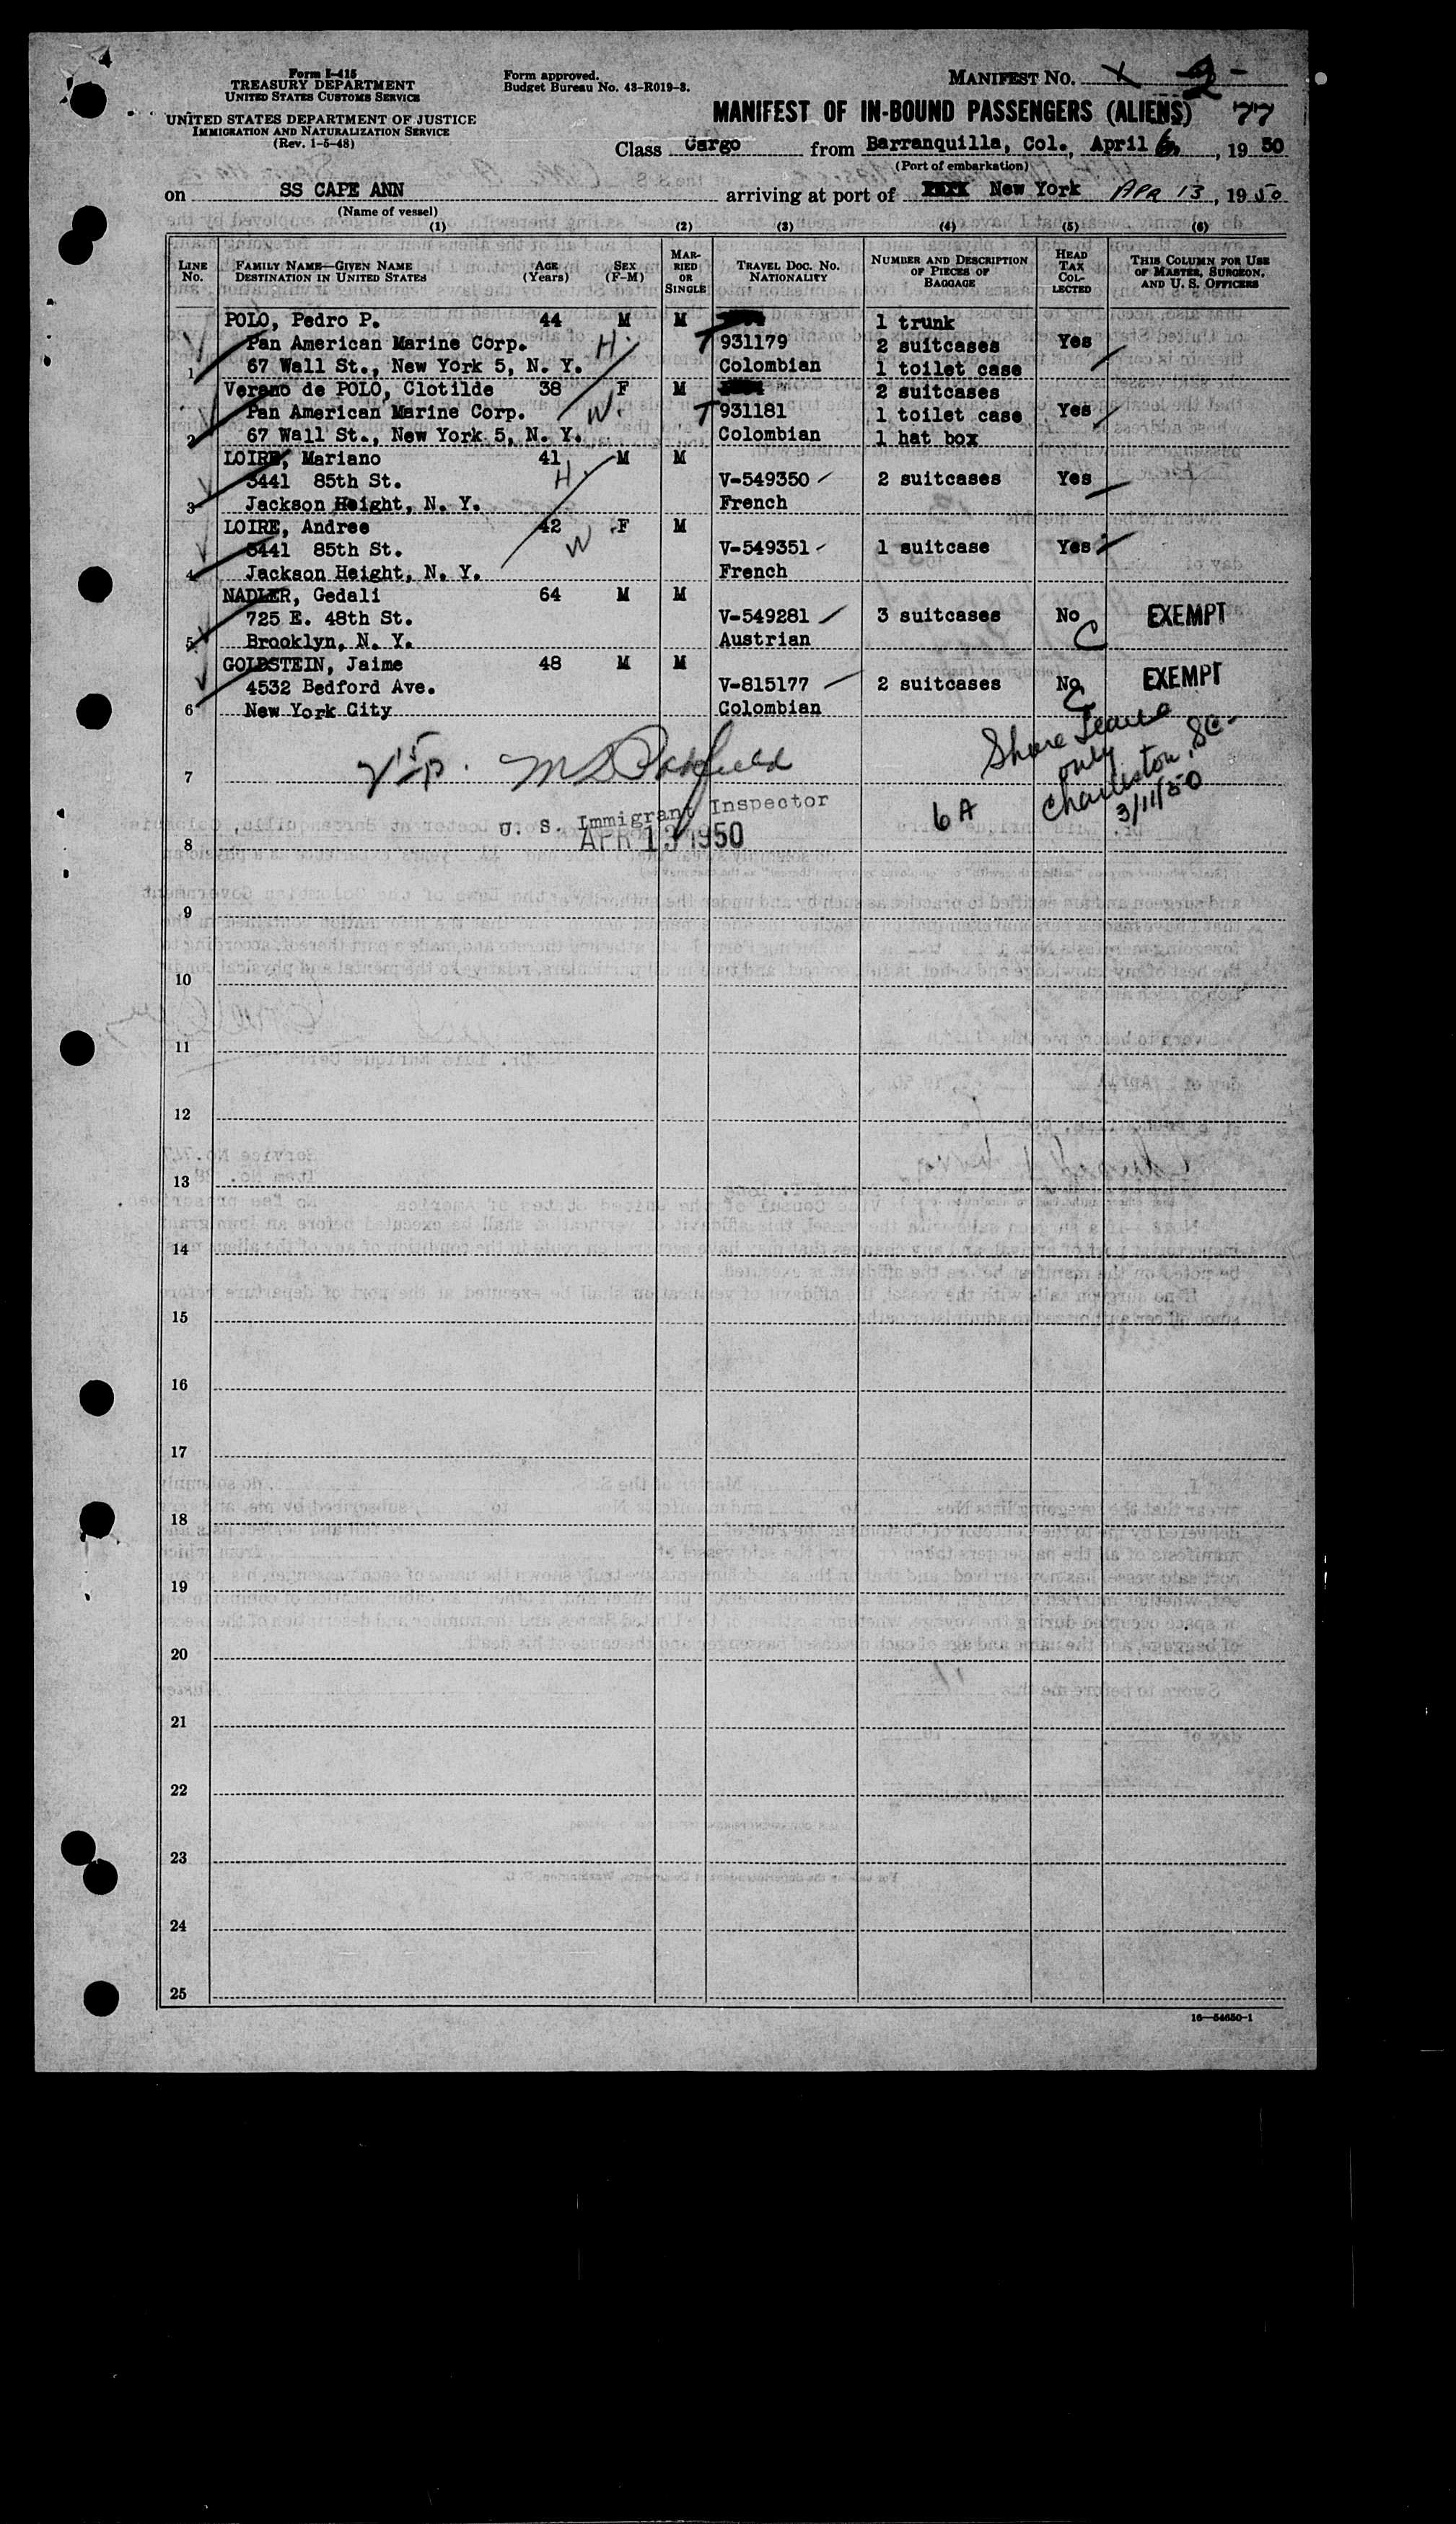 Form I-415
TREASURY DEPARTMENT
UNITED STATES CUSTOMS SERVICE
UNITED STATES DEPARTMENT OF JUSTICE
IMMIGRATION AND NATURALIZATION SERVICE
(Rev. 1-5-48)
Form approved.
Budget Bureau No. 43-R019-3.
MANIFEST NO. X 2 -
MANIFEST OF IN-BOUND PASSENGERS (ALIENS) 77
Class Cargo from Barranquilla, Col., April 6, 1950
(Port of embarkation)
on SS CAPE ANN arriving at port of New York Apr 13, 1950
(Name of vessel)
(1) (2) (3) (4) (5) (6)
LINE NO. FAMILY NAME—GIVEN NAME DESTINATION IN UNITED STATES AGE (YEARS) SEX (F-M) MARRIED OR SINGLE TRAVEL DOC. NO. NATIONALITY NUMBER AND DESCRIPTION OF PIECES OF BAGGAGE HEAD TAX COLLECTED THIS COLUMN FOR USE OF MASTER, SURGEON, AND U. S. OFFICERS
POLO, Pedro P. 44 M M 1 trunk
Pan American Marine Corp. H. T 931179 2 suitcases Yes
1 67 Wall St., New York 5, N. Y. Colombian 1 toilet case
Verano de POLO, Clotilde 38 F M 2 suitcases
Pan American Marine Corp. W. T 931181 1 toilet case Yes
2 67 Wall St., New York 5, N. Y. Colombian 1 hat box
LOIRE, Mariano 41 M M
3441 85th St. H. V-549350 2 suitcases Yes
3 Jackson Height, N. Y. French
LOIRE, Andree 42 F M
3441 85th St. W V-549351 1 suitcase Yes
4 Jackson Height, N. Y. French
NADLER, Gedali 64 M M
725 E. 48th St. V-549281 3 suitcases No EXEMPT
5 Brooklyn, N. Y. Austrian C
GOLDSTEIN, Jaime 48 M M
4532 Bedford Ave. V-815177 2 suitcases No EXEMPT
6 New York City Colombian C
Shore Leave
only
Charleston, SC-
3/11/50
7
6 A
U. S. Immigrant Inspector
APR 13 1950
8
9
10
11
12
13
14
15
16
17
18
19
20
21
22
23
24
25
16—54650-1